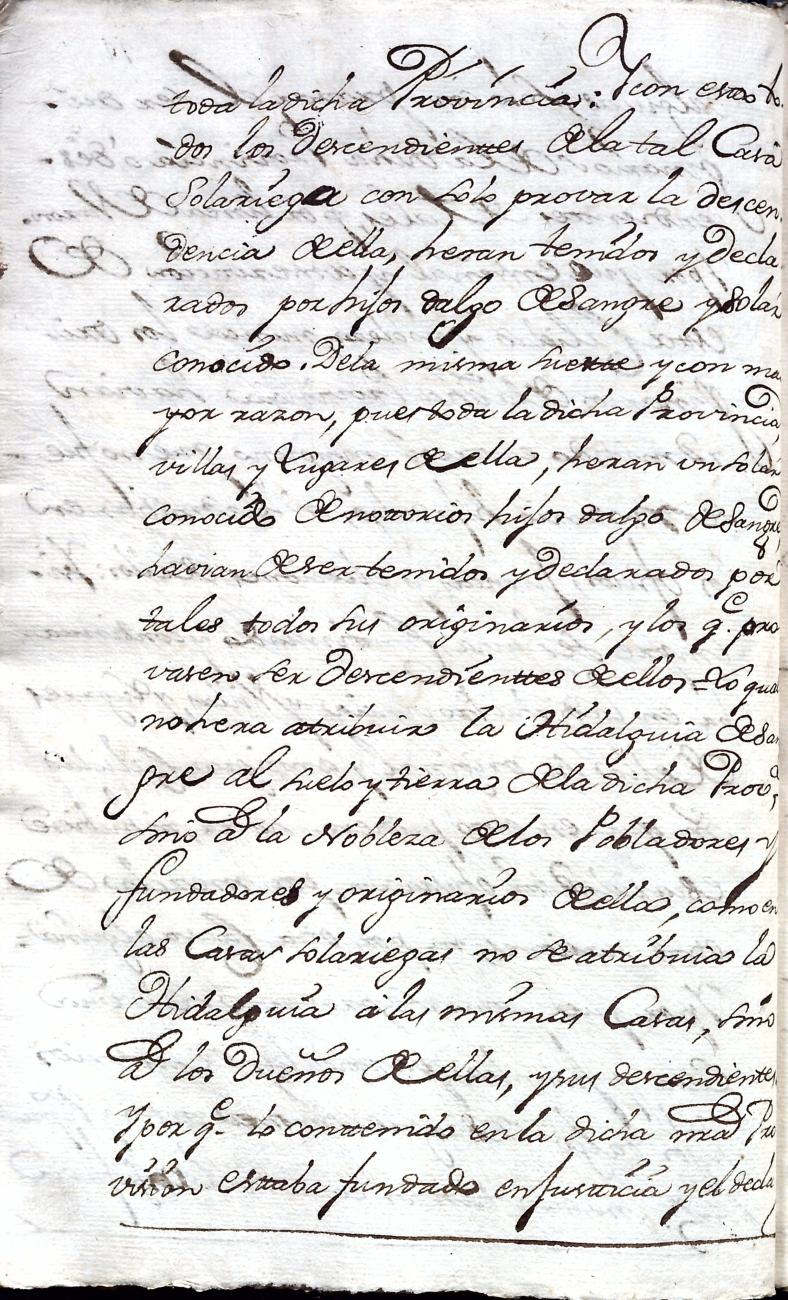 toda la dicha Provincia: Y con esto to-
dos los Descendientes de la tal Casa
Solariega con solo provar la descen-
dencia de ella, heran tenidos y Decla-
rados por hijos dalgo de Sangre y Solar
conocido. De la misma suerte y con ma-
yor razon, pues toda la dicha Provincia,
villas y Lugares de ella, heran un solar
conocido de notorios hijos dalgo de Sangre,
havian de ser tenidos y Declarados por
tales todos sus originarios, y los q.e pro-
vasen ser Descendienttes de ellos = Lo qual
no hera atribuir la Hidalguia de San-
gre al suelo y tierra de la dicha Prov.a
sino a la Nobleza de los Pobladores y
fundadores y originarios de ella, como en
las Casas solariegas no se atribuia la
Hidalguia á las mismas Casas, sino
a los Dueños de ellas, y sus descendientes
Y por q.e lo conttenido en la dicha nra Pro
vision esttaba fundado en Justticia y el decla